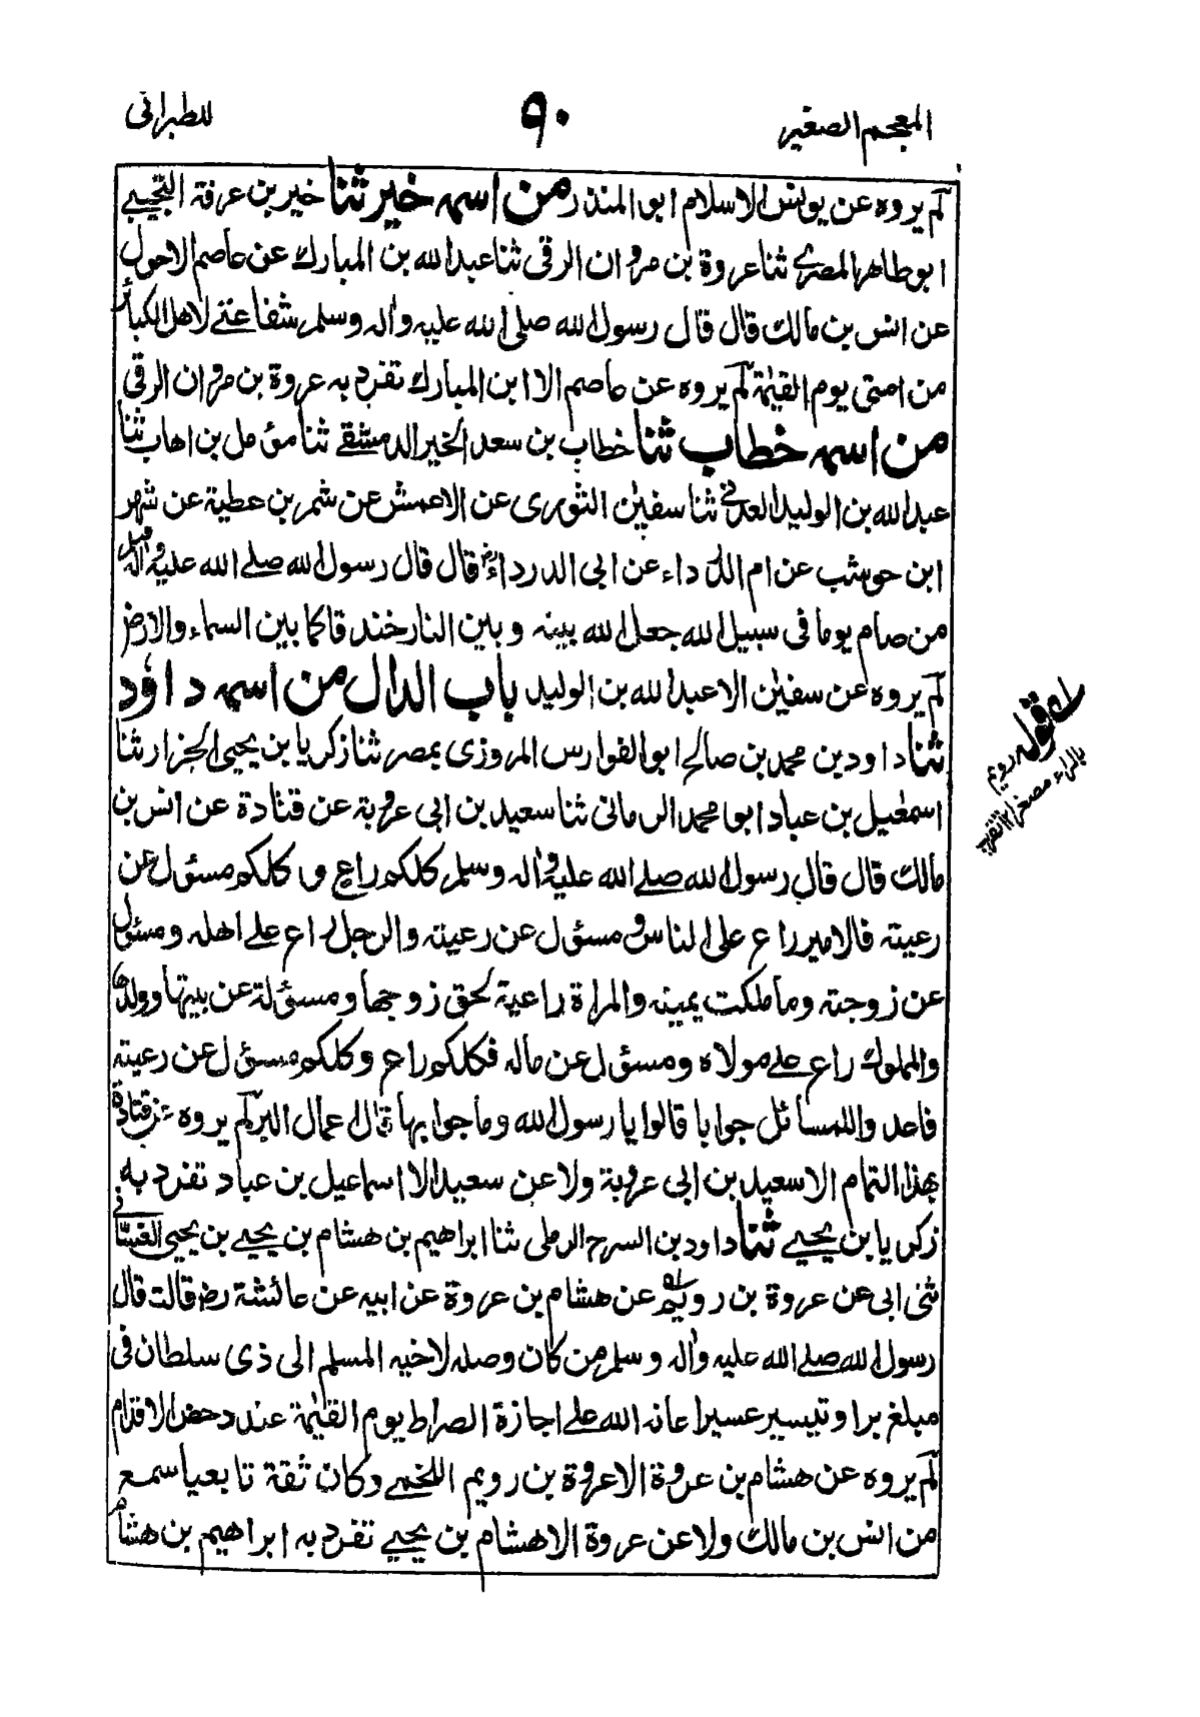 المعجم الصغير
٩٠
للطبرانى
لم يروه عن يونس الا سلام ابو المنذر من اسمه خير ثنا خير بن عرفة التجيبي
ابو طاهر المصري ثنا عروة بن مروان الرقى ثنا عبد الله بن المبارك عن عاصم الاحول
عن انس بن مالك قال قال رسول الله صلى الله عليه واله وسلم شفاعتے لاهل الكبائر
من امتى يوم القيٰمة لم يروه عن عاصم الا ابن المبارك تفرد به عروة بن مروان الرقى
من اسمه خطاب ثنا خطاب بن سعد الخير الدمشقے ثنا مؤمل بن اهاب ثنا
عبد الله بن الوليد العدنى ثنا سفيٰن الثورى عن الاعمش عن شمر بن عطية عن شهر
ابن حوشب عن ام الدرداء عن ابى الدرداءؓ قال قال رسول الله صلے الله عليه واله وسلم
من صام يوما فى سبيل الله جعل الله بينه وبين النار خندقا كما بين السماء والارض
لم يروه عن سفيٰن الا عبد الله بن الوليد باب الدال من اسمه داؤد
ثنا داود بن محمد بن صالح ابو الفوارس المروزى بمصر ثنا زكريا بن يحيى الجزار ثنا
اسمٰعيل بن عباد ابو محمد الرمانى ثنا سعيد بن ابى عروبة عن قتادة عن انس بن
مالك قال قال رسول الله صلے الله عليه واله وسلم كلكم راع و كلكم مسئول عن
رعيته فالامير راع على الناس و مسئول عن رعيته والرجل راع علے اهله ومسئول
عن زوجته وما ملكت يمينه والمراة راعية لحق زوجها ومسئولة عن بيتها وولدها
والمملوك راع علے مولاه ومسئول عن ماله فكلكم راع وكلكم مسئول عن رعيته
فاعد واللمسائل جوابا قالوا يا رسول الله وما جوابها قال اعمال البر لم يروه عن قتادة
بهذا التمام الا سعيد بن ابى عروبة ولا عن سعيد الا اسماعيل بن عباد تفرد به
زكريا بن يحيے ثنا داود بن السرح الرملى ثنا ابراهيم بن هشام بن يحيے بن يحيى الغسانى
ثنى ابى عن عروة بن رويم عن هشام بن عروة عن ابيه عن عائشة رض قالت قال
رسول الله صلے الله عليه واله وسلم من كان وصله لاخيه المسلم الى ذى سلطان فى
مبلغ برا وتيسير عسير اعانه الله علے اجازة الصراط يوم القيٰمة عند دحض الاقدام
لم يروه عن هشام بن عروة الا عروة بن رويم اللخمے وكان ثقة تابعيا سمع
من انس بن مالك ولا عن عروة الا هشام بن يحيے تفرد به ابراهيم بن هشام
له قوله رويم
بالراء مصغرا ١٢ تقريب